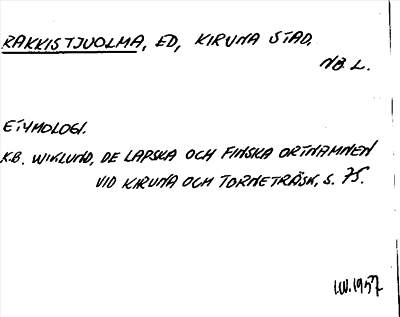 RAKKISTJUOLMA, ED, KIRUNA STAD.
NB. L.
ETYMOLOGI.
K.B. WIKLUND, DE LAPSKA OCH FINSKA ORTNAMNEN
VID KIRUNA OCH TORNETRÄSK, S. 75.
1957